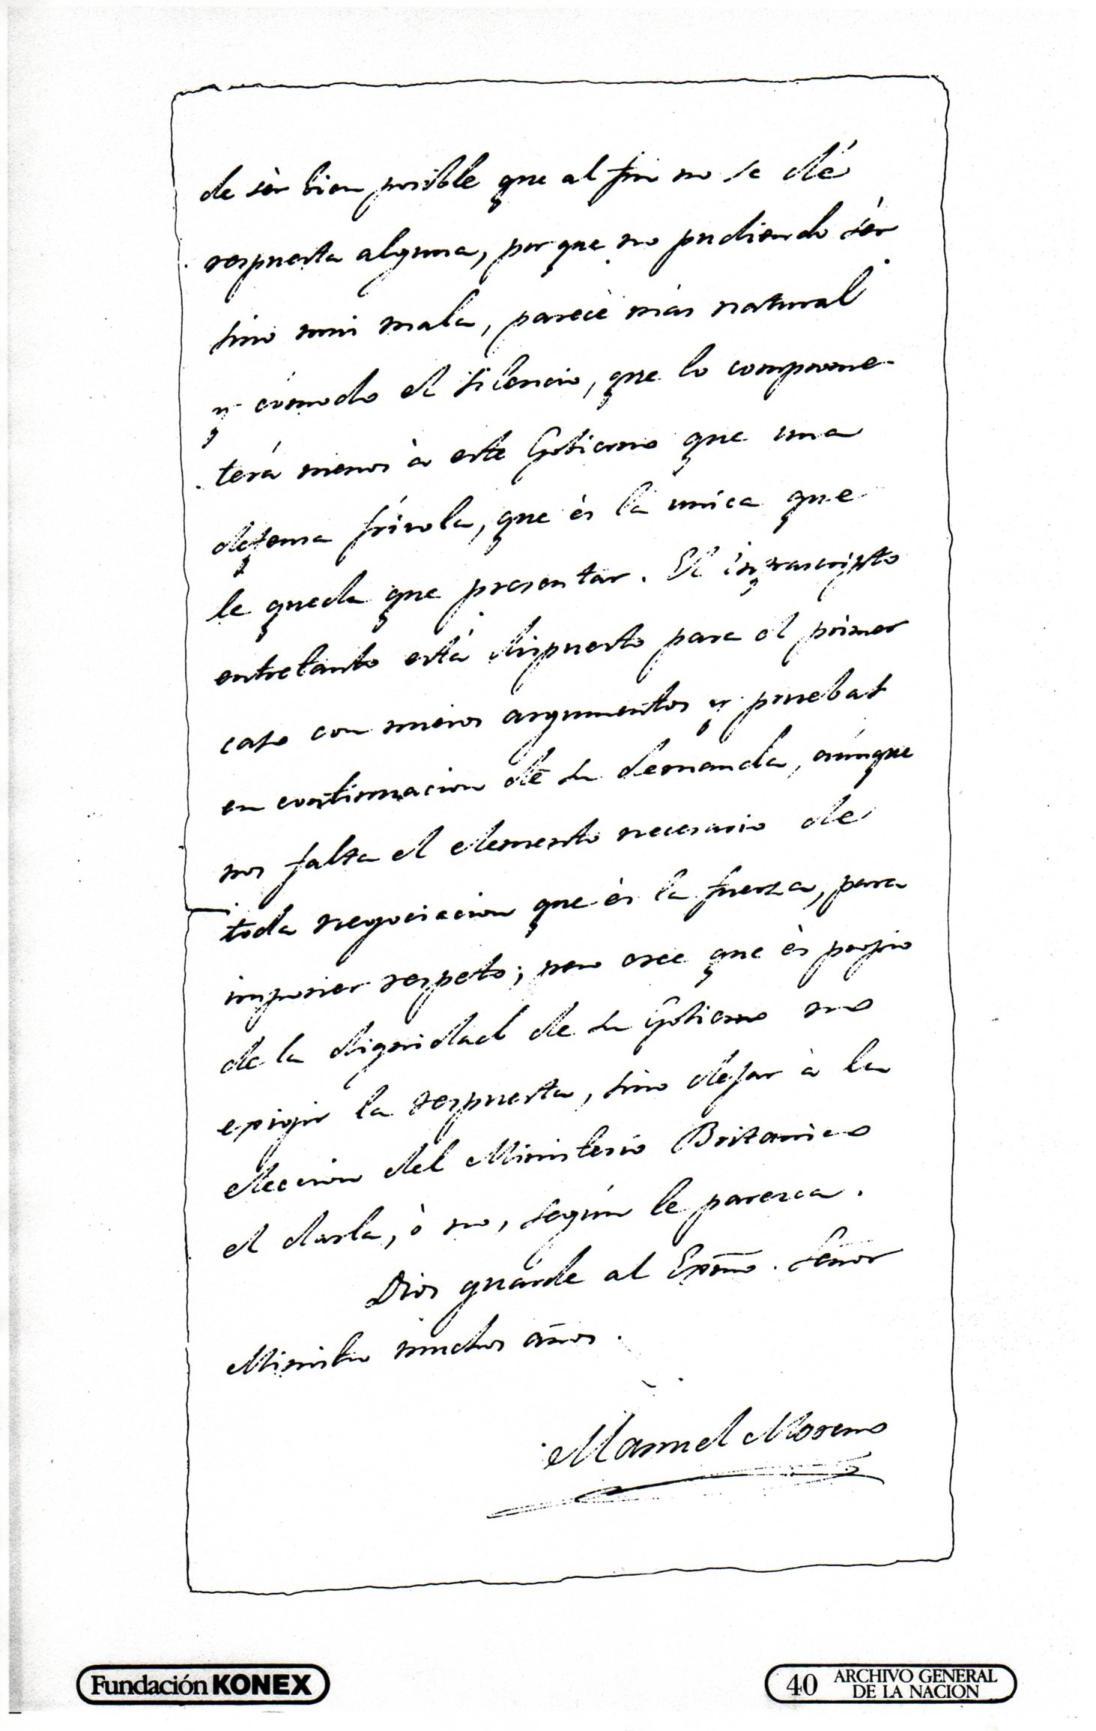 de sèr bien posible que al fin no se dé
respuesta alguna, por que no pudiendo sér
sino mui mala, parece más natural
y cómodo el silencio, que lo comprome-
terá menos à este Gobierno que una
defensa frívola, que és la unica que
le queda que presentar. El infrascripto
entretanto está dispuesto para el primer
caso con nuevos argumentos y pruebas
en confirmacion de su demanda, aúnque
nos falta el elemento necesario de
toda negociacion que és la fuerza, para
imponer respeto; pero cree que ès propio
de la dignidad de su Gobierno no
exigir la respuesta, sino dejar à la
eleccion del Ministerio Britanico
el darla, ò no, según le paresca.
Dios guárde al Exmo. Señor
Ministro muchos años.
Manuel Moreno
Fundación KONEX
40 ARCHIVO GENERAL
DE LA NACION